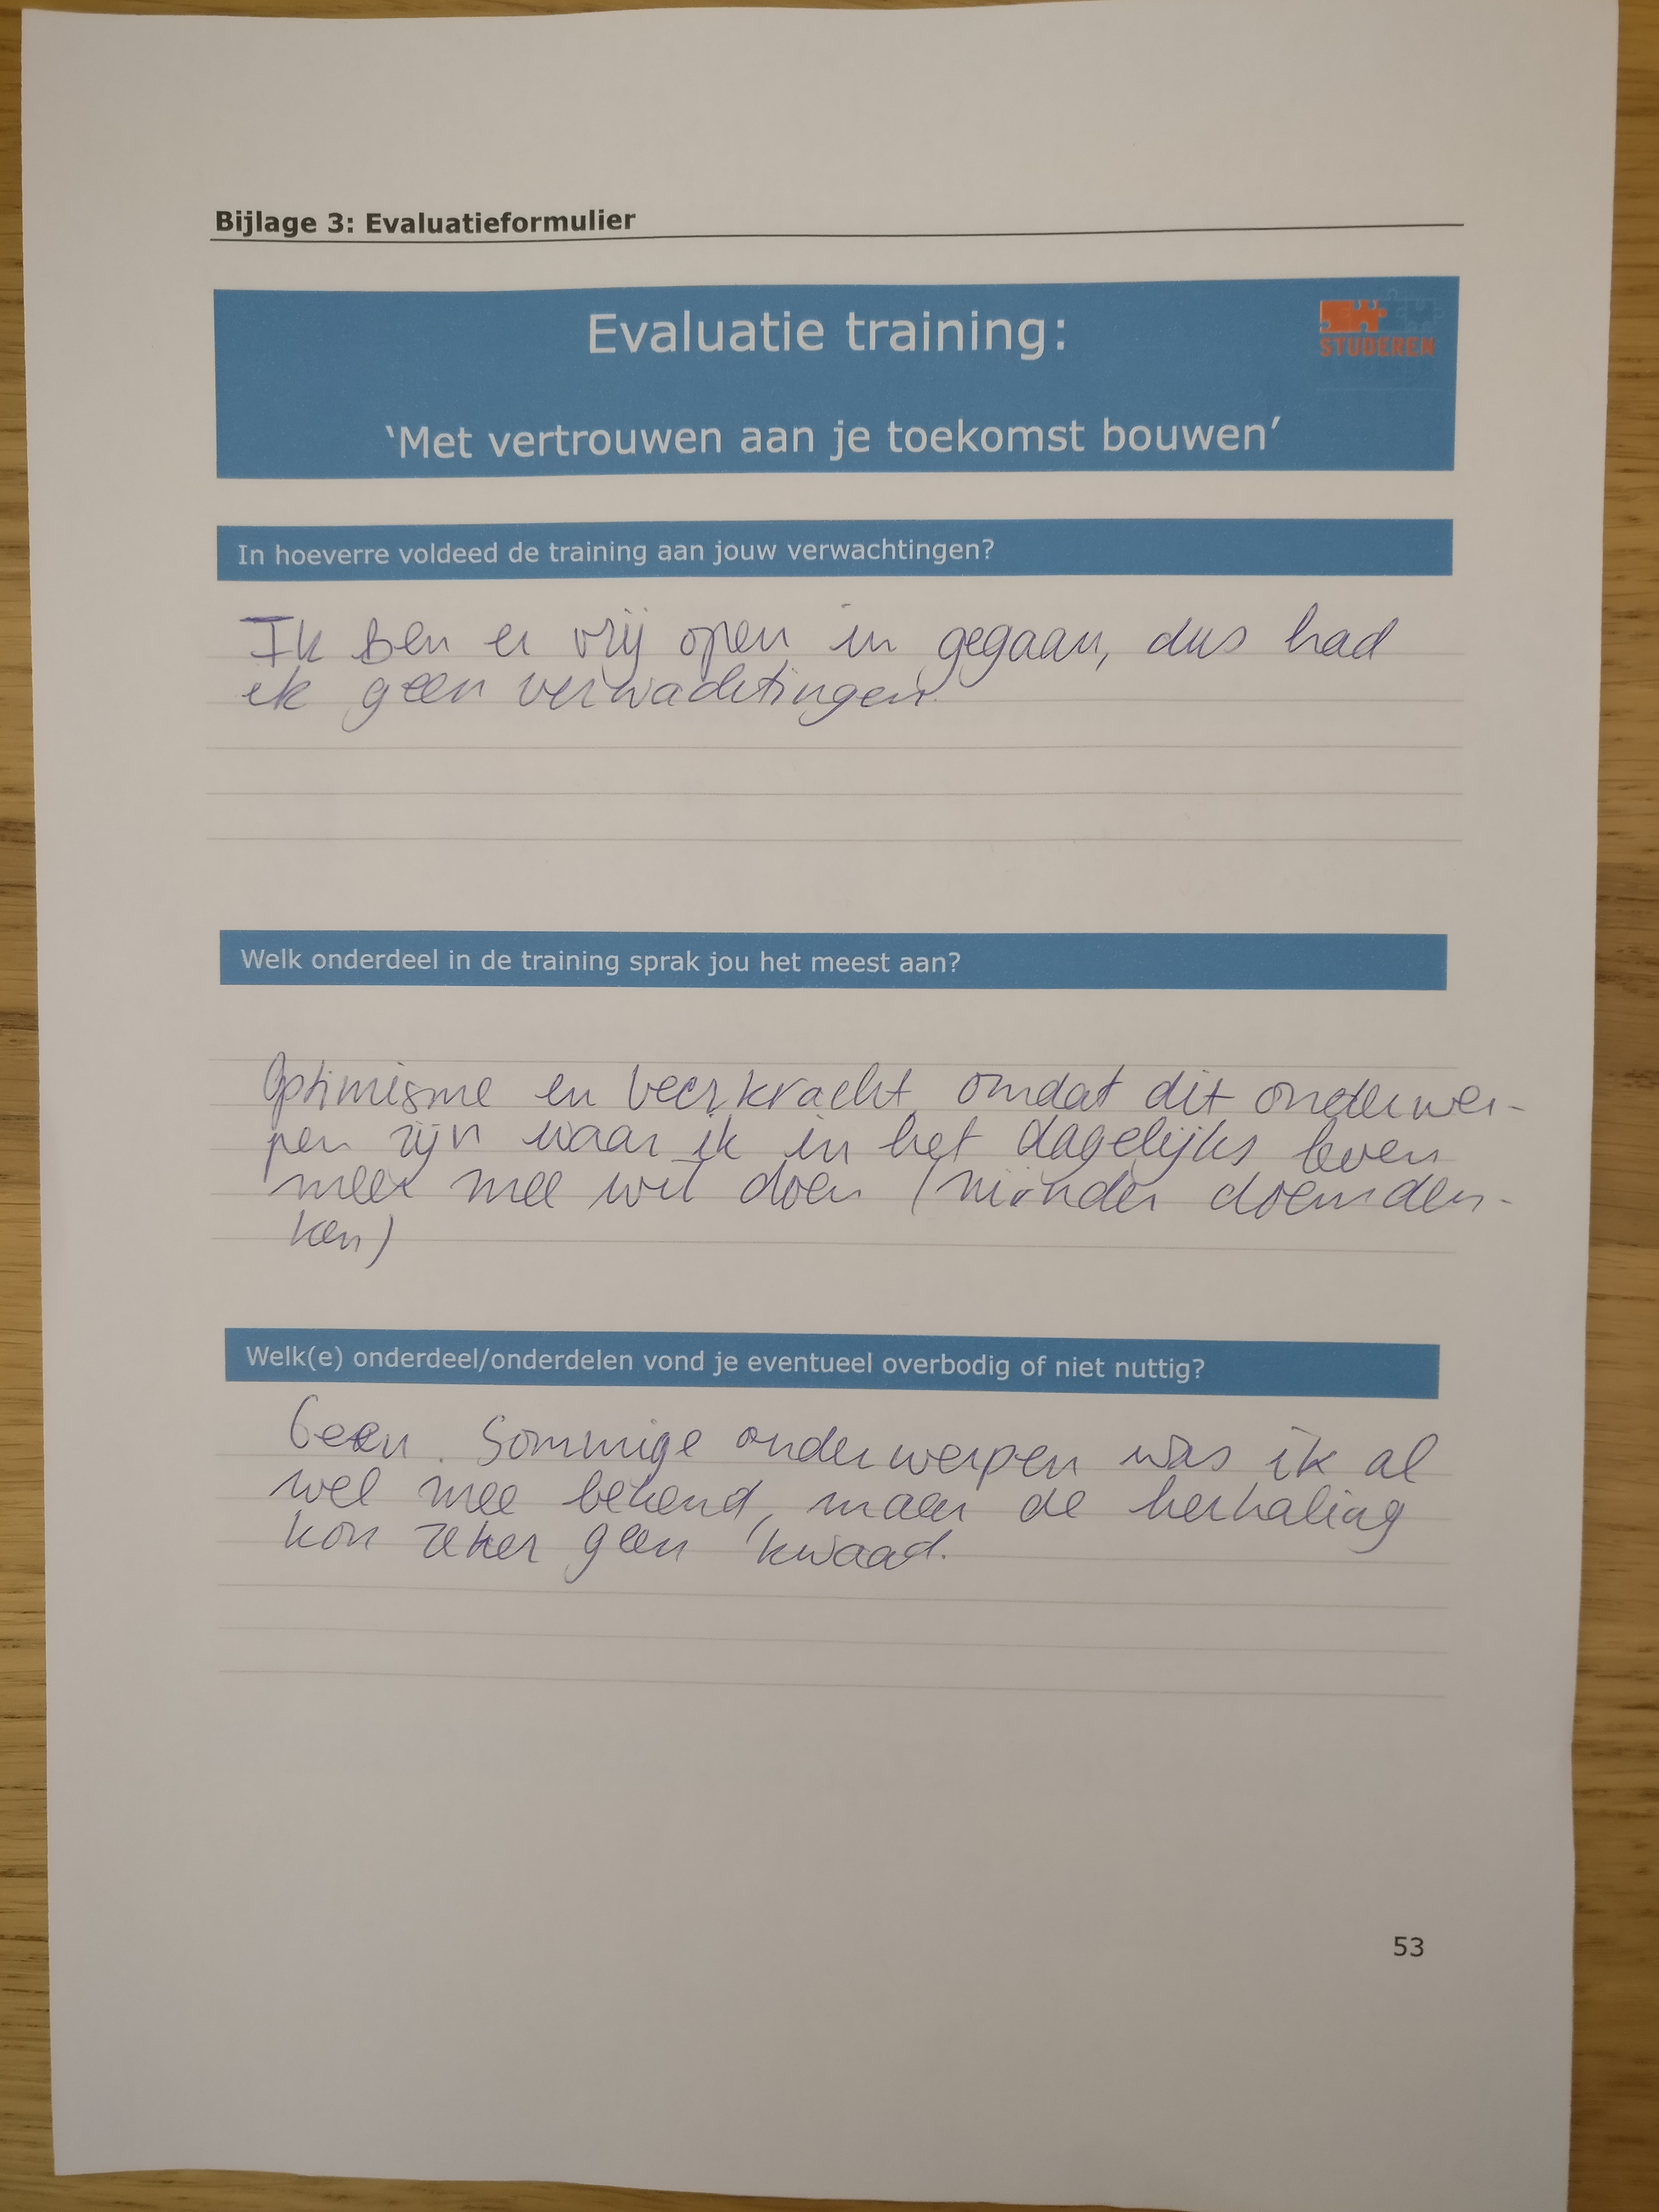 Bijlage 3: Evaluatieformulier
Evaluatie training:
STUDEREN
'Met vertrouwen aan je toekomst bouwen'
In hoeverre voldeed de training aan jouw verwachtingen?
Ik ben er vrij open in gegaan, dus had
ik geen verwachtingen.
Welk onderdeel in de training sprak jou het meest aan?
Optimisme en veerkracht omdat dit onderwer-
pen zijn waar ik in het dagelijks leven
meer mee wil doen (minder doemden-
ken)
Welk(e) onderdeel/onderdelen vond je eventueel overbodig of niet nuttig?
Geen. Sommige onderwerpen was ik al
wel mee bekend, maar de herhaling
kon zeker geen kwaad.
53